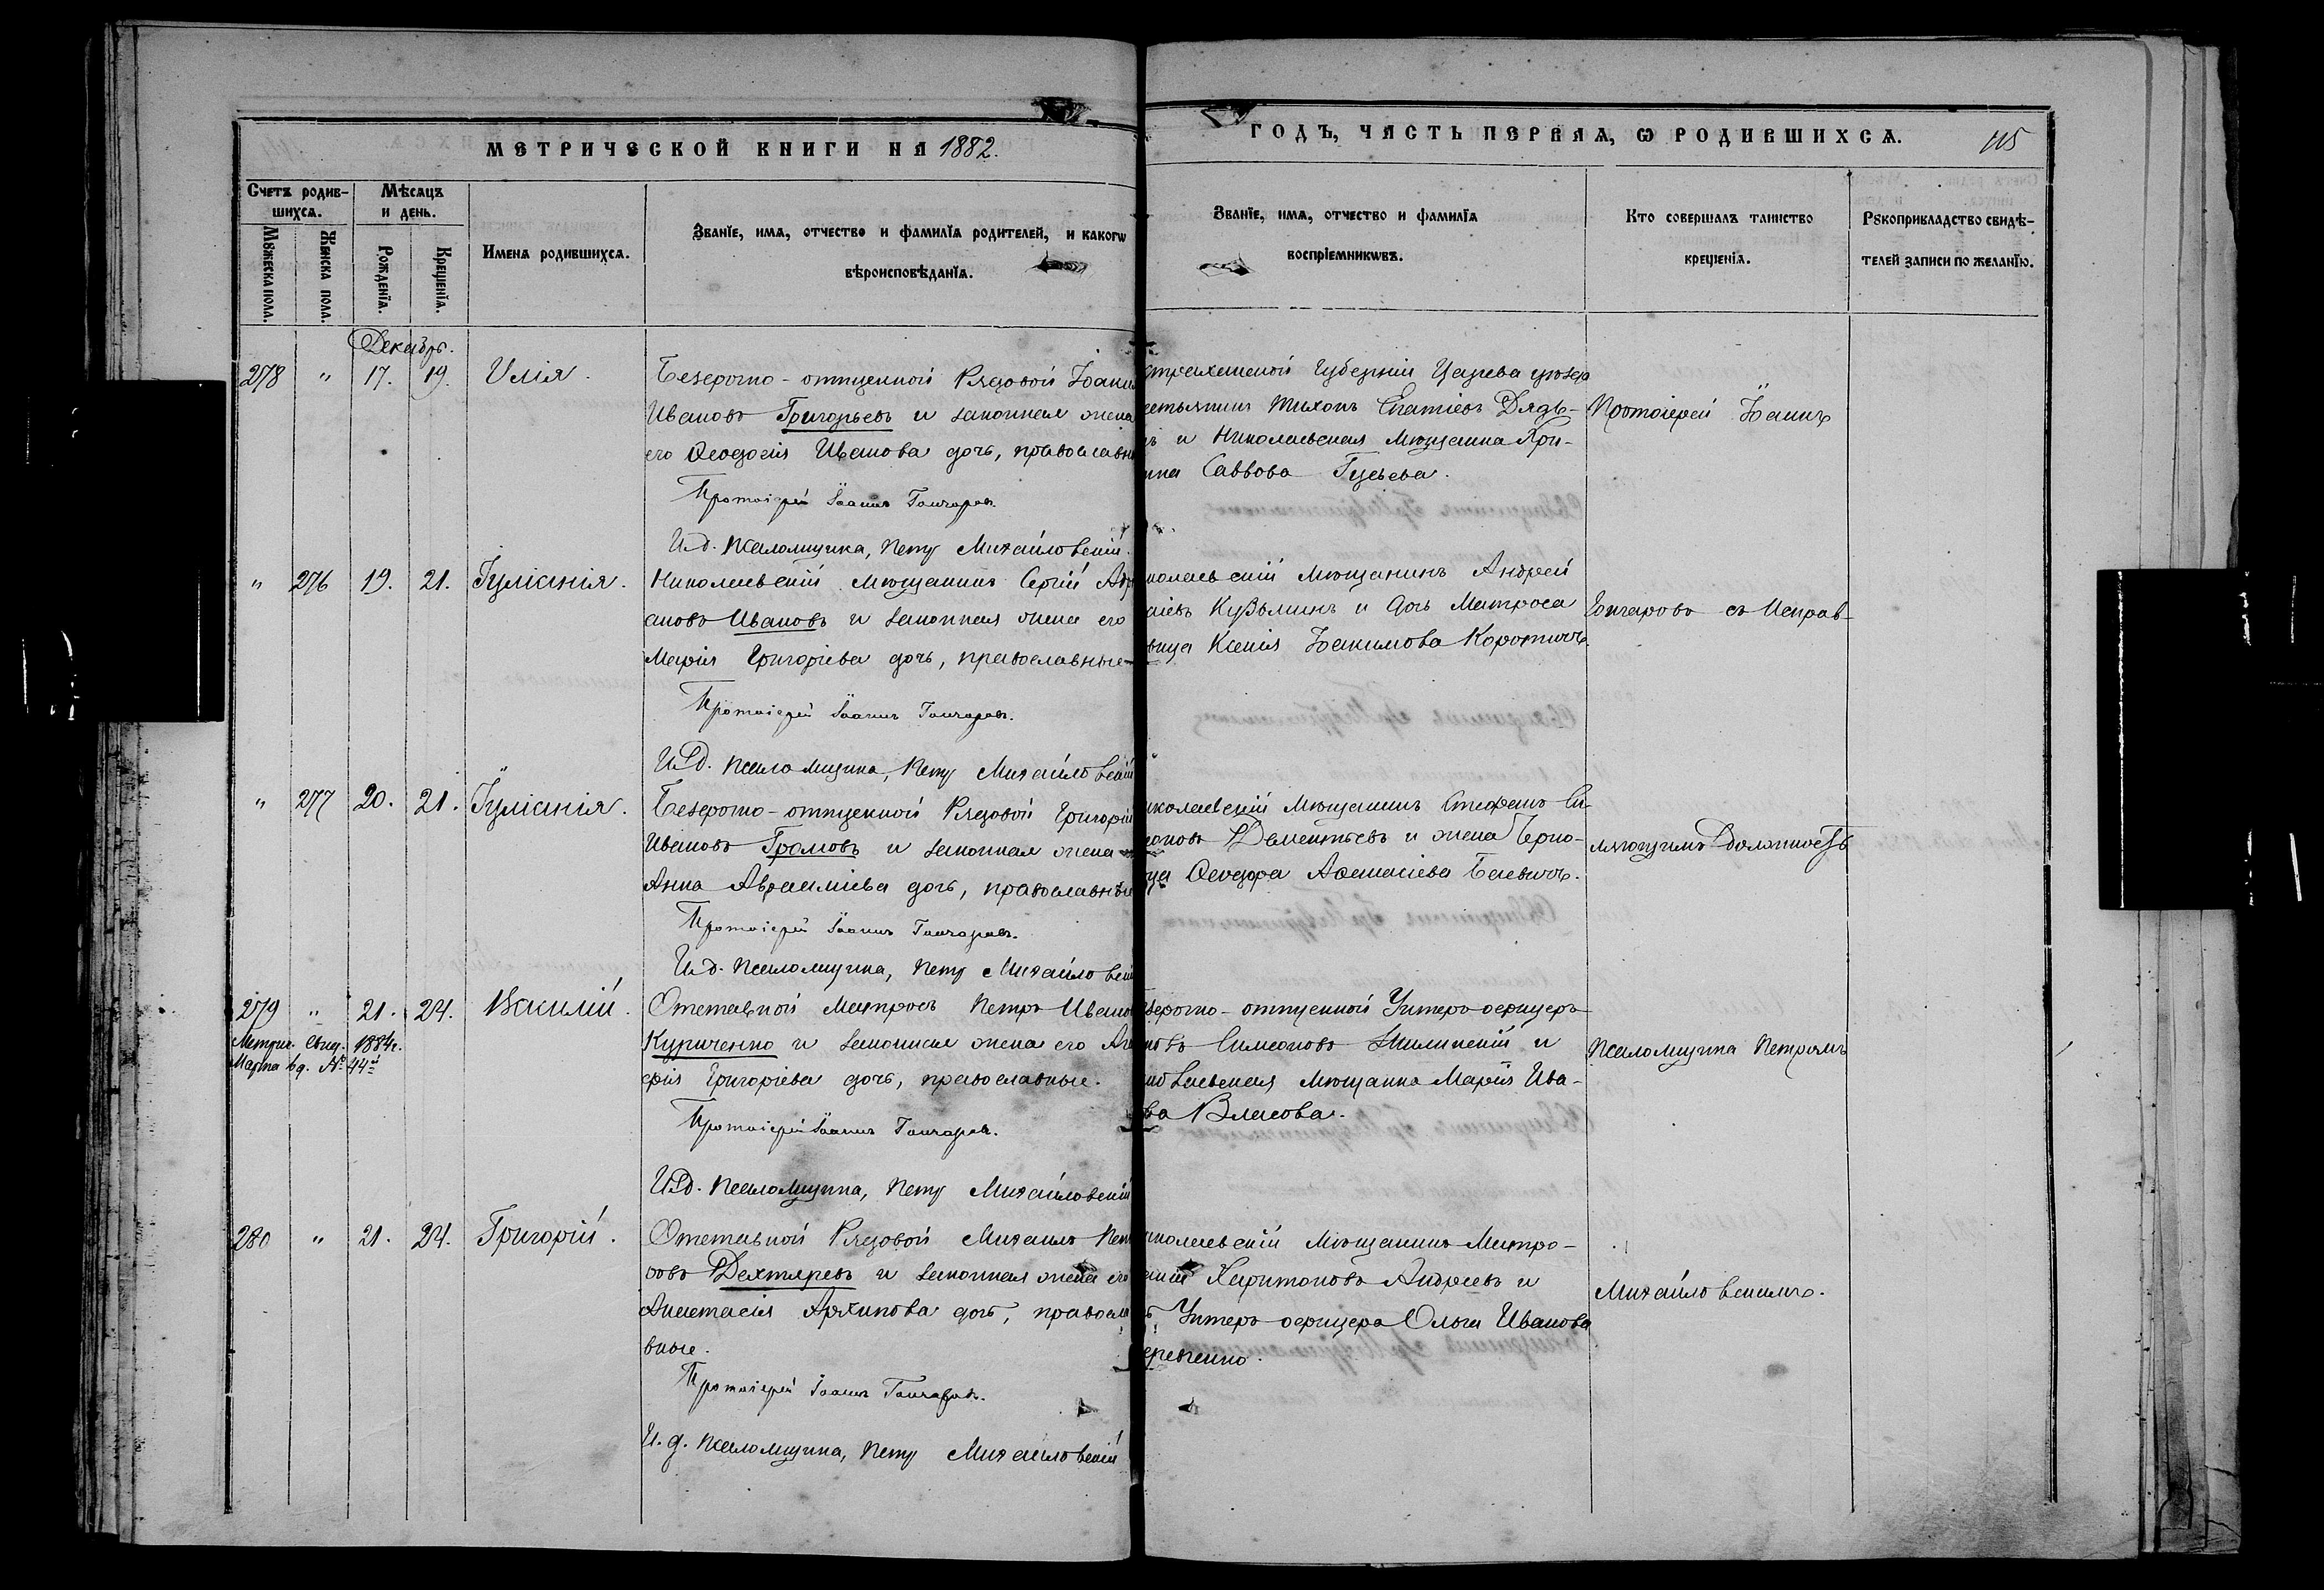 МЕТРИЧЕСКОЙ КНИГИ НА 1882.
ГОДЪ, ЧАСТЬ ПЕРВАЯ, Ѡ РОДИВШИХСЯ.
115
Счетъ родив-
шихся.
Мѣсяцъ
и день.
Мужеска пола.
Женска пола.
Рожденїя.
Крещенїя.
Имена родившихся.
Званїе, имя, отчество и фамилїя родителей, и какогѡ
вѣроисповѣданїя.
Званїе, имя, отчество и фамилїя
воспрїемникѡвъ.
Кто совершалъ таинство
крещенїя.
Рꙋкоприкладство свидѣ-
телей записи по желанїю.
Декабрь.
278 " 17. 19. Илія.
Безсрочно-отпущенной Рядовой Іоанн
Ивановъ Григорьевъ и законная жена
его Ѳеодосія Иванова дочь, православн
Протоіерей Іоаннъ Гончаровъ.
И.д. Псаломщика, Петръ Михайловскій.
страханской Губерніи Царева уѣзда
рестьянинъ Тихонъ Игнатіевъ Дядь-
ъ и Николаевская Мѣщанка Хри-
ина Саввова Гусьева.
Протоіерей Іоаннъ
" 276 19. 21. Іуліанія.
Николаевскій Мѣщанинъ Сергій Адр
ановъ Ивановъ и законная жена его
Марія Григоріева дочь, православные
Протоіерей Іоаннъ Гончаровъ.
И.д. Псаломщика, Петръ Михайловскій
колаевскій Мѣщанинъ Андрей
Кузьминъ и дочь Матроса
вица Ксенія Іоакимова Коротичъ.
Гончаровъ съ Исправ-
" 277 20. 21. Іуліанія.
Безсрочно-отпущенной Рядовой Григорій
Ивановъ Громовъ и законная жена
Анна Авраміева дочь, православные
Протоіерей Іоаннъ Гончаровъ.
И.д. Псаломщика, Петръ Михайловскій
иколаевскій Мѣщанинъ Стефанъ Си-
оновъ Дементьевъ и жена Черно-
Ѳеодора Аѳанасіева Баевичъ.
ляющимъ Должность
279 " 21. 24. Василій.
Метрич. свид. 1884 г.
Марта 6 д. № 44й
Отставной Матросъ Петръ Ивано
Куриченко и законная жена его Ага
фія Григоріева дочь, православные.
Протоіерей Іоаннъ Гончаровъ.
И.д. Псаломщика, Петръ Михайловскій
зсрочно-отпущенной Унтеръ-офицеръ
новъ Симеоновъ Жилинскій и
колаевская Мѣщанка Марія Ива-
ва Власова.
Псаломщика Петромъ
280 " 21. 24. Григорій.
Отставной Рядовой Михаилъ Пет
ровъ Дехтяревъ и законная жена его
Анастасія Архипова дочь, правосла
вные.
Протоіерей Іоаннъ Гончаровъ.
И.д. Псаломщика, Петръ Михайловскій
иколаевскій Мѣщанинъ Митро-
аній Харитоновъ Андреевъ и
Унтеръ-офицера Ольга Иванова
Михайловскимъ.